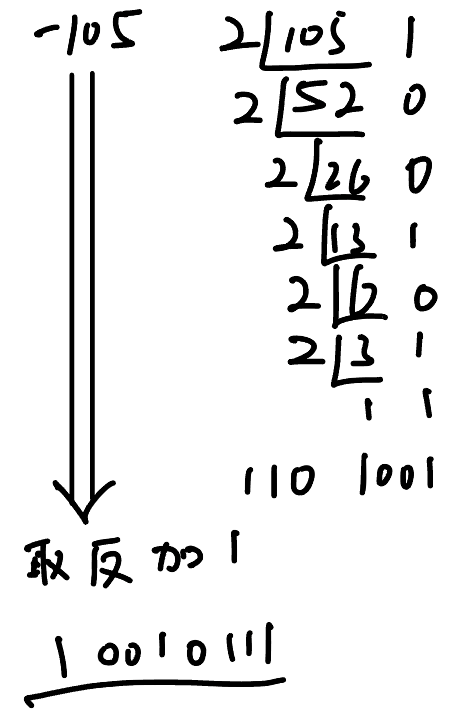 -105
2 105 1
2 52 0
2 26 0
2 13 1
2 6 0
2 3 1
1 1
110 1001
取反加1
1 0010111